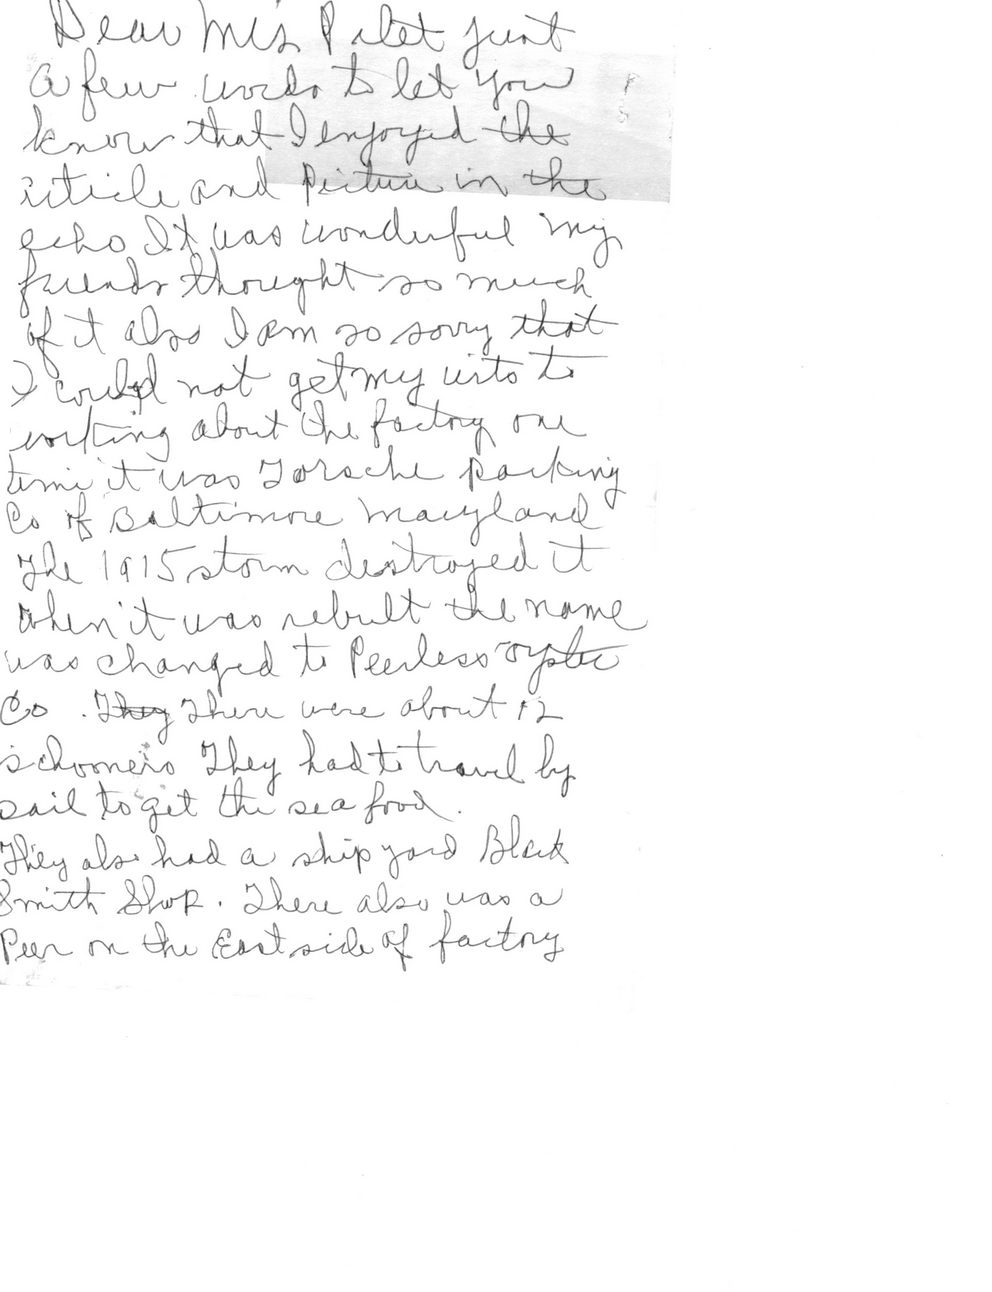 Dear Mrs Pilet just
a few words to let you
know that I enjoyed the
article and Picture in the
echo It was wonderful my
friends thought so much
of it also I am so sorry that
I could not get my wits to
working about the factory one
time it was Torsche packing
Co of Baltimore Maryland
The 1915 storm destroyed it
when it was rebult the name
was changed to Peerless oyster
Co . They There were about 12
schooners They had to travel by
sail to get the sea food.
They also had a ship yard Black
Smith Shop. There also was a
Peer on the East side of factory